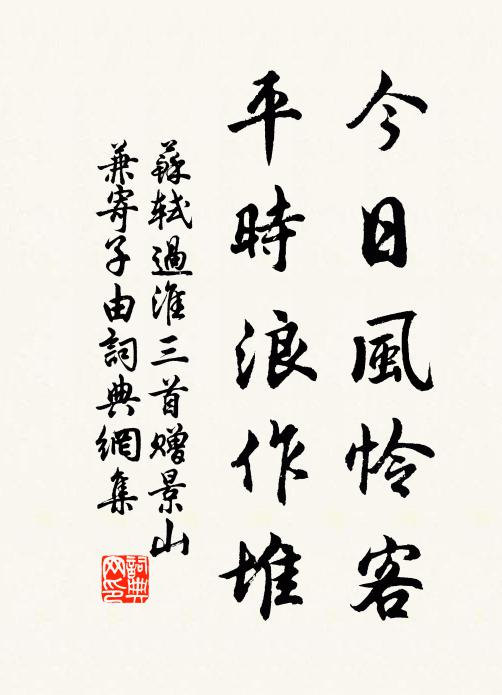 今日風怜客
平時浪作堆
蘇軾過淮三首贈景山
兼寄子由詞典網集
詞典網印